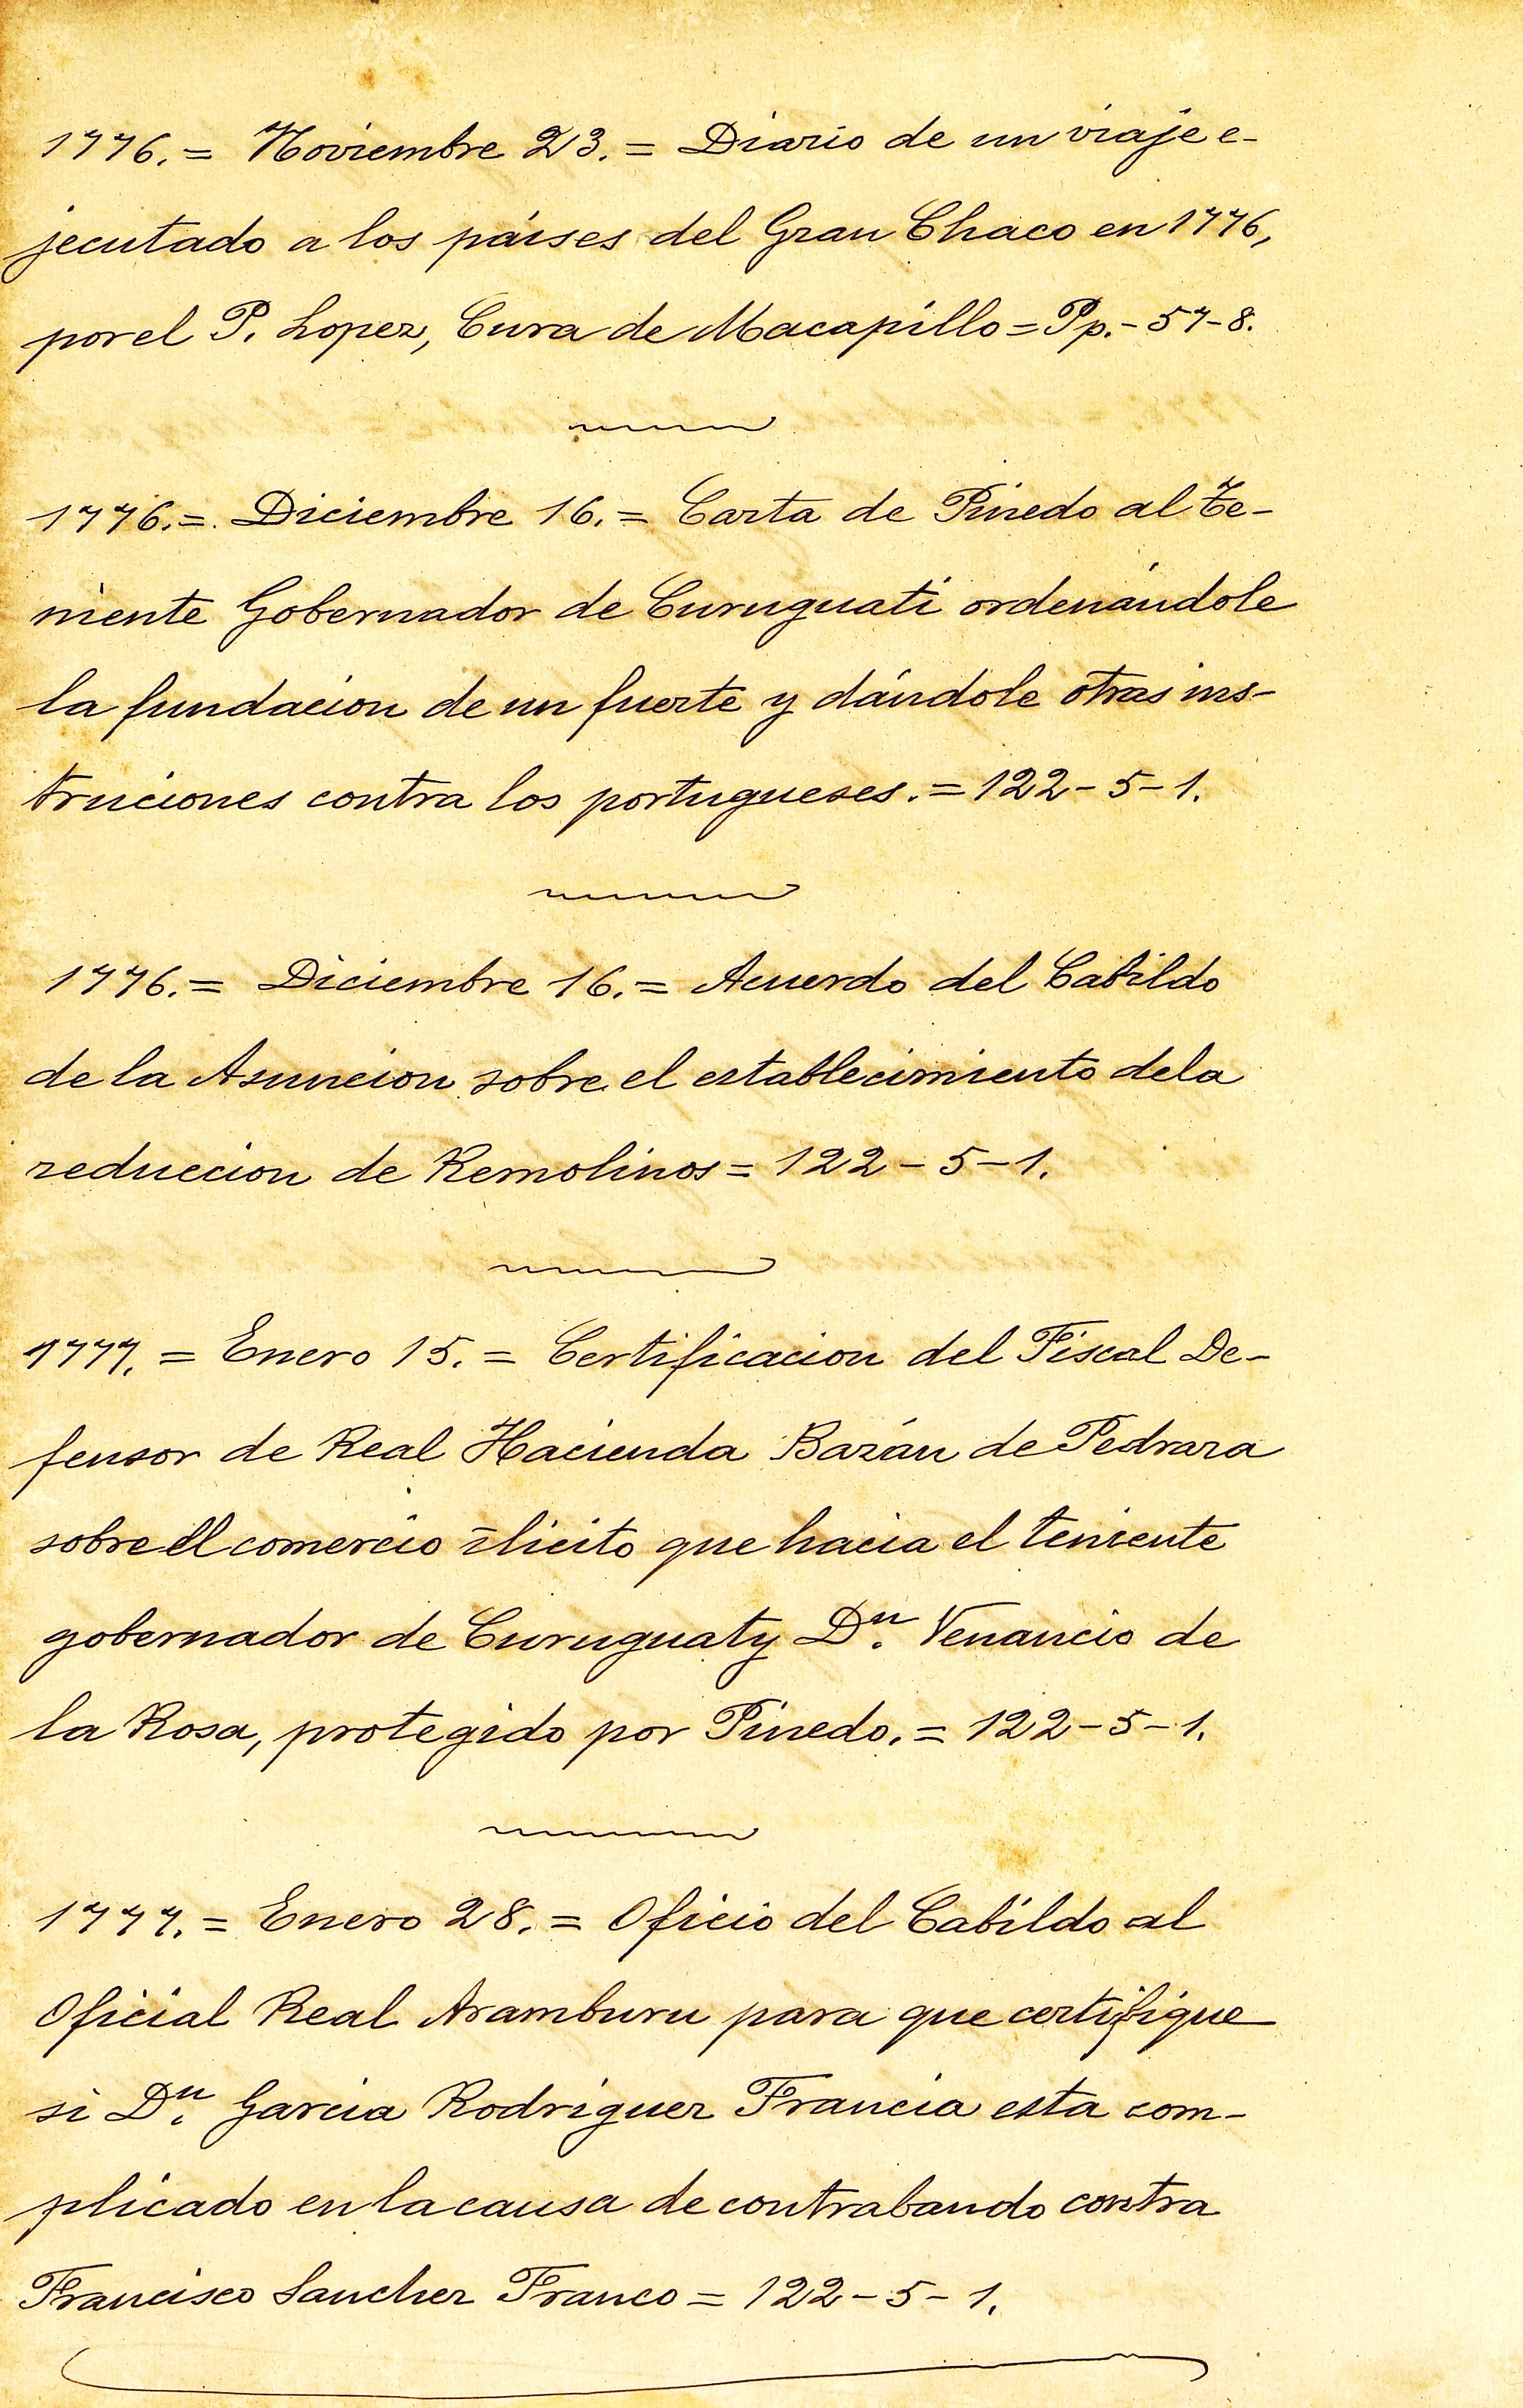 1776. = Noviembre 23. = Diario de un viaje e-
jecutado a los países del Gran Chaco en 1776,
por el P. Lopez, Cura de Macapillo = Pp. - 57-8.
1776. = Diciembre 16. = Carta de Pinedo al Te-
niente Gobernador de Curuguati ordenándole
la fundacion de un fuerte y dándole otras ins-
truciones contra los portugueses. = 122-5-1.
1776. = Diciembre 16. = Acuerdo del Cabildo
de la Asuncion sobre el establecimiento de la
reduccion de Remolinos = 122-5-1.
1777. = Enero 15. = Certificacion del Fiscal De-
fensor de Real Hacienda Bazán de Pedraza
sobre el comercio ilicito que hacia el teniente
gobernador de Curuguaty Dn. Venancio de
la Rosa, protegido por Pinedo. = 122-5-1.
1777. = Enero 28. = Oficio del Cabildo al
Oficial Real Aramburu para que certifique
si Dn. Garcia Rodriguez Francia esta com-
plicado en la causa de contrabando contra
Francisco Sanchez Franco = 122-5-1.